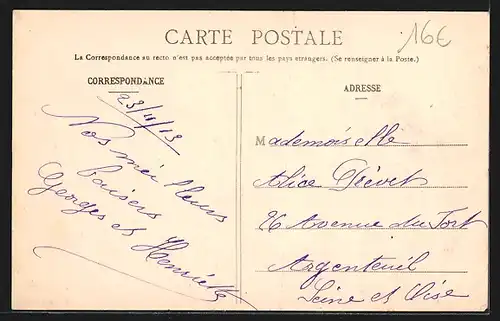 16€
CARTE POSTALE
La Correspondance au recto n'est pas acceptée par tous les pays étrangers. (Se renseigner à la Poste.)
CORRESPONDANCE
23/11/13
Nos meilleurs
baisers
Georges et Henriette
ADRESSE
Mademoiselle
Alice Prévet
26 Avenue du Fort
Argenteuil
Seine et Oise